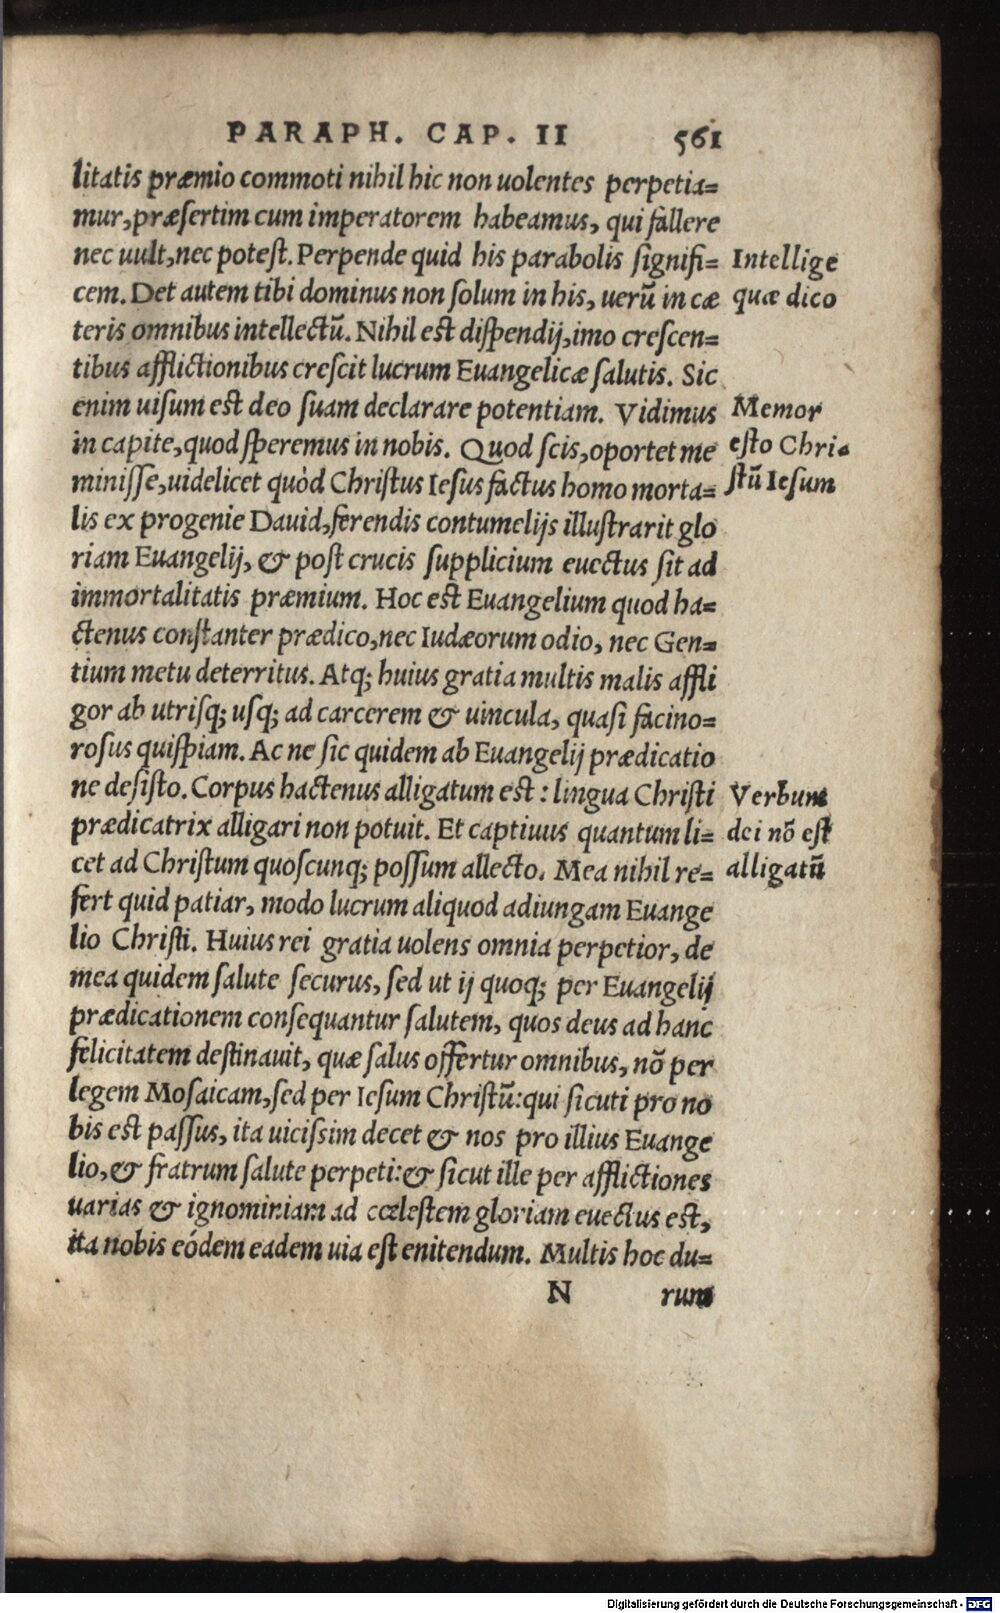 PARAPH. CAP. II 561
litatis præmio commoti nihil hic non uolentes perpetia=
mur, præſertim cum imperatorem habeamus, qui fallere
nec uult, nec poteſt. Perpende quid his parabolis ſignifi=
cem. Det autem tibi dominus non ſolum in his, uerũ in cæ
teris omnibus intellectũ. Nihil eſt diſpendij, imo creſcen=
tibus afflictionibus creſcit lucrum Euangelicæ ſalutis. Sic
enim uiſum eſt deo ſuam declarare potentiam. Vidimus
in capite, quod ſperemus in nobis. Quod ſcis, oportet me
miniſſe, uidelicet quòd Chriſtus Ieſus factus homo morta=
lis ex progenie Dauid, ferendis contumelijs illuſtrarit glo
riam Euangelij, & poſt crucis ſupplicium euectus ſit ad
immortalitatis præmium. Hoc eſt Euangelium quod ha=
ctenus conſtanter prædico, nec Iudæorum odio, nec Gen=
tium metu deterritus. Atq; huius gratia multis malis affli
gor ab utriſq; uſq; ad carcerem & uincula, quaſi facino=
roſus quiſpiam. Ac ne ſic quidem ab Euangelij prædicatio
ne deſiſto. Corpus hactenus alligatum eſt: lingua Chriſti
prædicatrix alligari non potuit. Et captiuus quantum li=
cet ad Chriſtum quoſcunq; poſſum allecto. Mea nihil re=
fert quid patiar, modo lucrum aliquod adiungam Euange
lio Chriſti. Huius rei gratia uolens omnia perpetior, de
mea quidem ſalute ſecurus, ſed ut ij quoq; per Euangelij
prædicationem conſequantur ſalutem, quos deus ad hanc
felicitatem deſtinauit, quæ ſalus offertur omnibus, nõ per
legem Moſaicam, ſed per Ieſum Chriſtũ: qui ſicuti pro no
bis eſt paſſus, ita uiciſſim decet & nos pro illius Euange
lio, & fratrum ſalute perpeti: & ſicut ille per afflictiones
uarias & ignominiam ad cœleſtem gloriam euectus eſt,
ita nobis eódem eadem uia eſt enitendum. Multis hoc du=
N rum
Intellige
quæ dico
Memor
eſto Chri=
ſtũ Ieſum
Verbum
dei nõ eſt
alligatũ
Digitalisierung gefördert durch die Deutsche Forschungsgemeinschaft - DFG